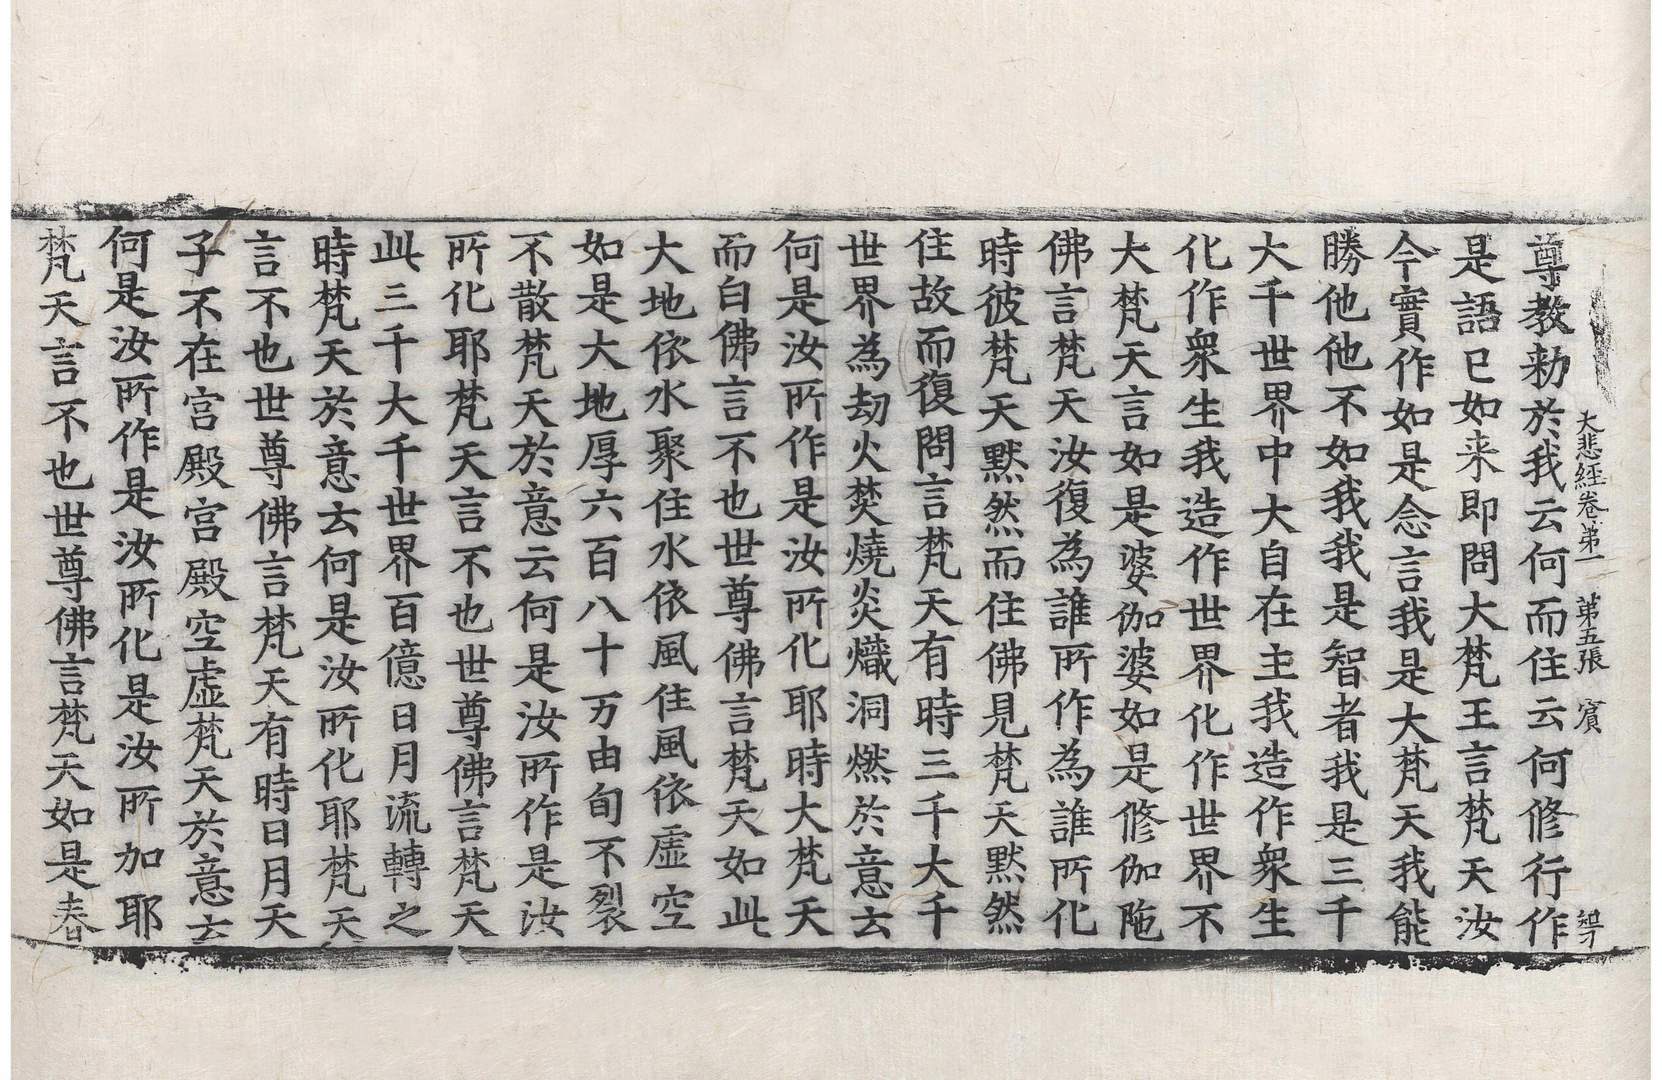 大悲經卷第一 第五張 賓
尊教勑於我云何而住云何修行作
是語已如来即問大梵王言梵天汝
今實作如是念言我是大梵天我能
勝他他不如我我是智者我是三千
大千世界中大自在主我造作衆生
化作衆生我造作世界化作世界不
大梵天言如是婆伽婆如是修伽陁
佛言梵天汝復為誰所作為誰所化
時彼梵天默然而住佛見梵天默然
住故而復問言梵天有時三千大千
世界為劫火焚燒炎熾洞燃於意云
何是汝所作是汝所化耶時大梵天
而白佛言不也世尊佛言梵天如此
大地依水聚住水依風住風依虛空
如是大地厚六百八十万由旬不裂
不散梵天於意云何是汝所作是汝
所化耶梵天言不也世尊佛言梵天
此三千大千世界百億日月流轉之
時梵天於意云何是汝所化耶梵天
言不也世尊佛言梵天有時日月天
子不在宮殿宮殿空虛梵天於意云
何是汝所作是汝所化是汝所加耶
梵天言不也世尊佛言梵天如是春